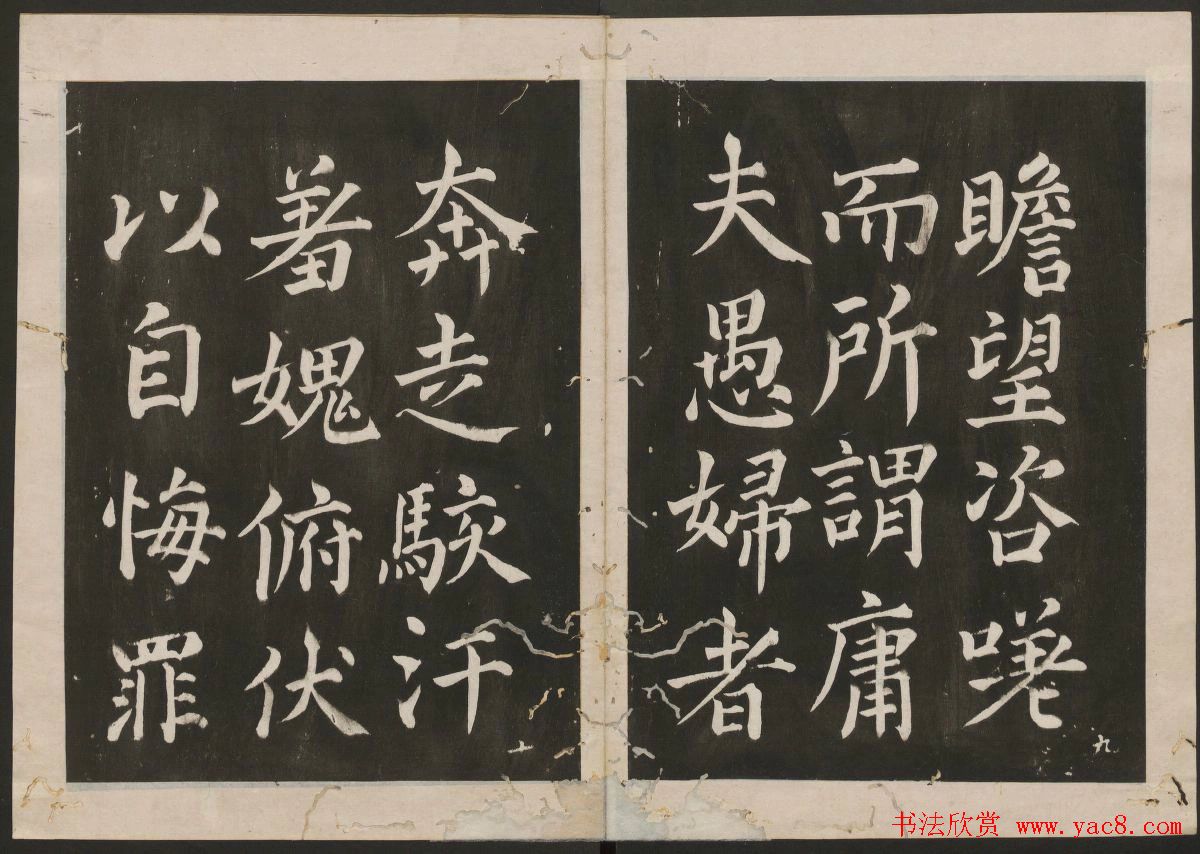 瞻望咨嗟
而所謂庸
夫愚婦者
九
奔走駭汗
羞媿俯伏
以自悔罪
十
书法欣赏 www.yac8.com